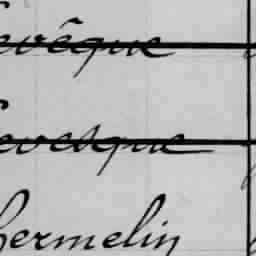 evêque
evesque
hermelin